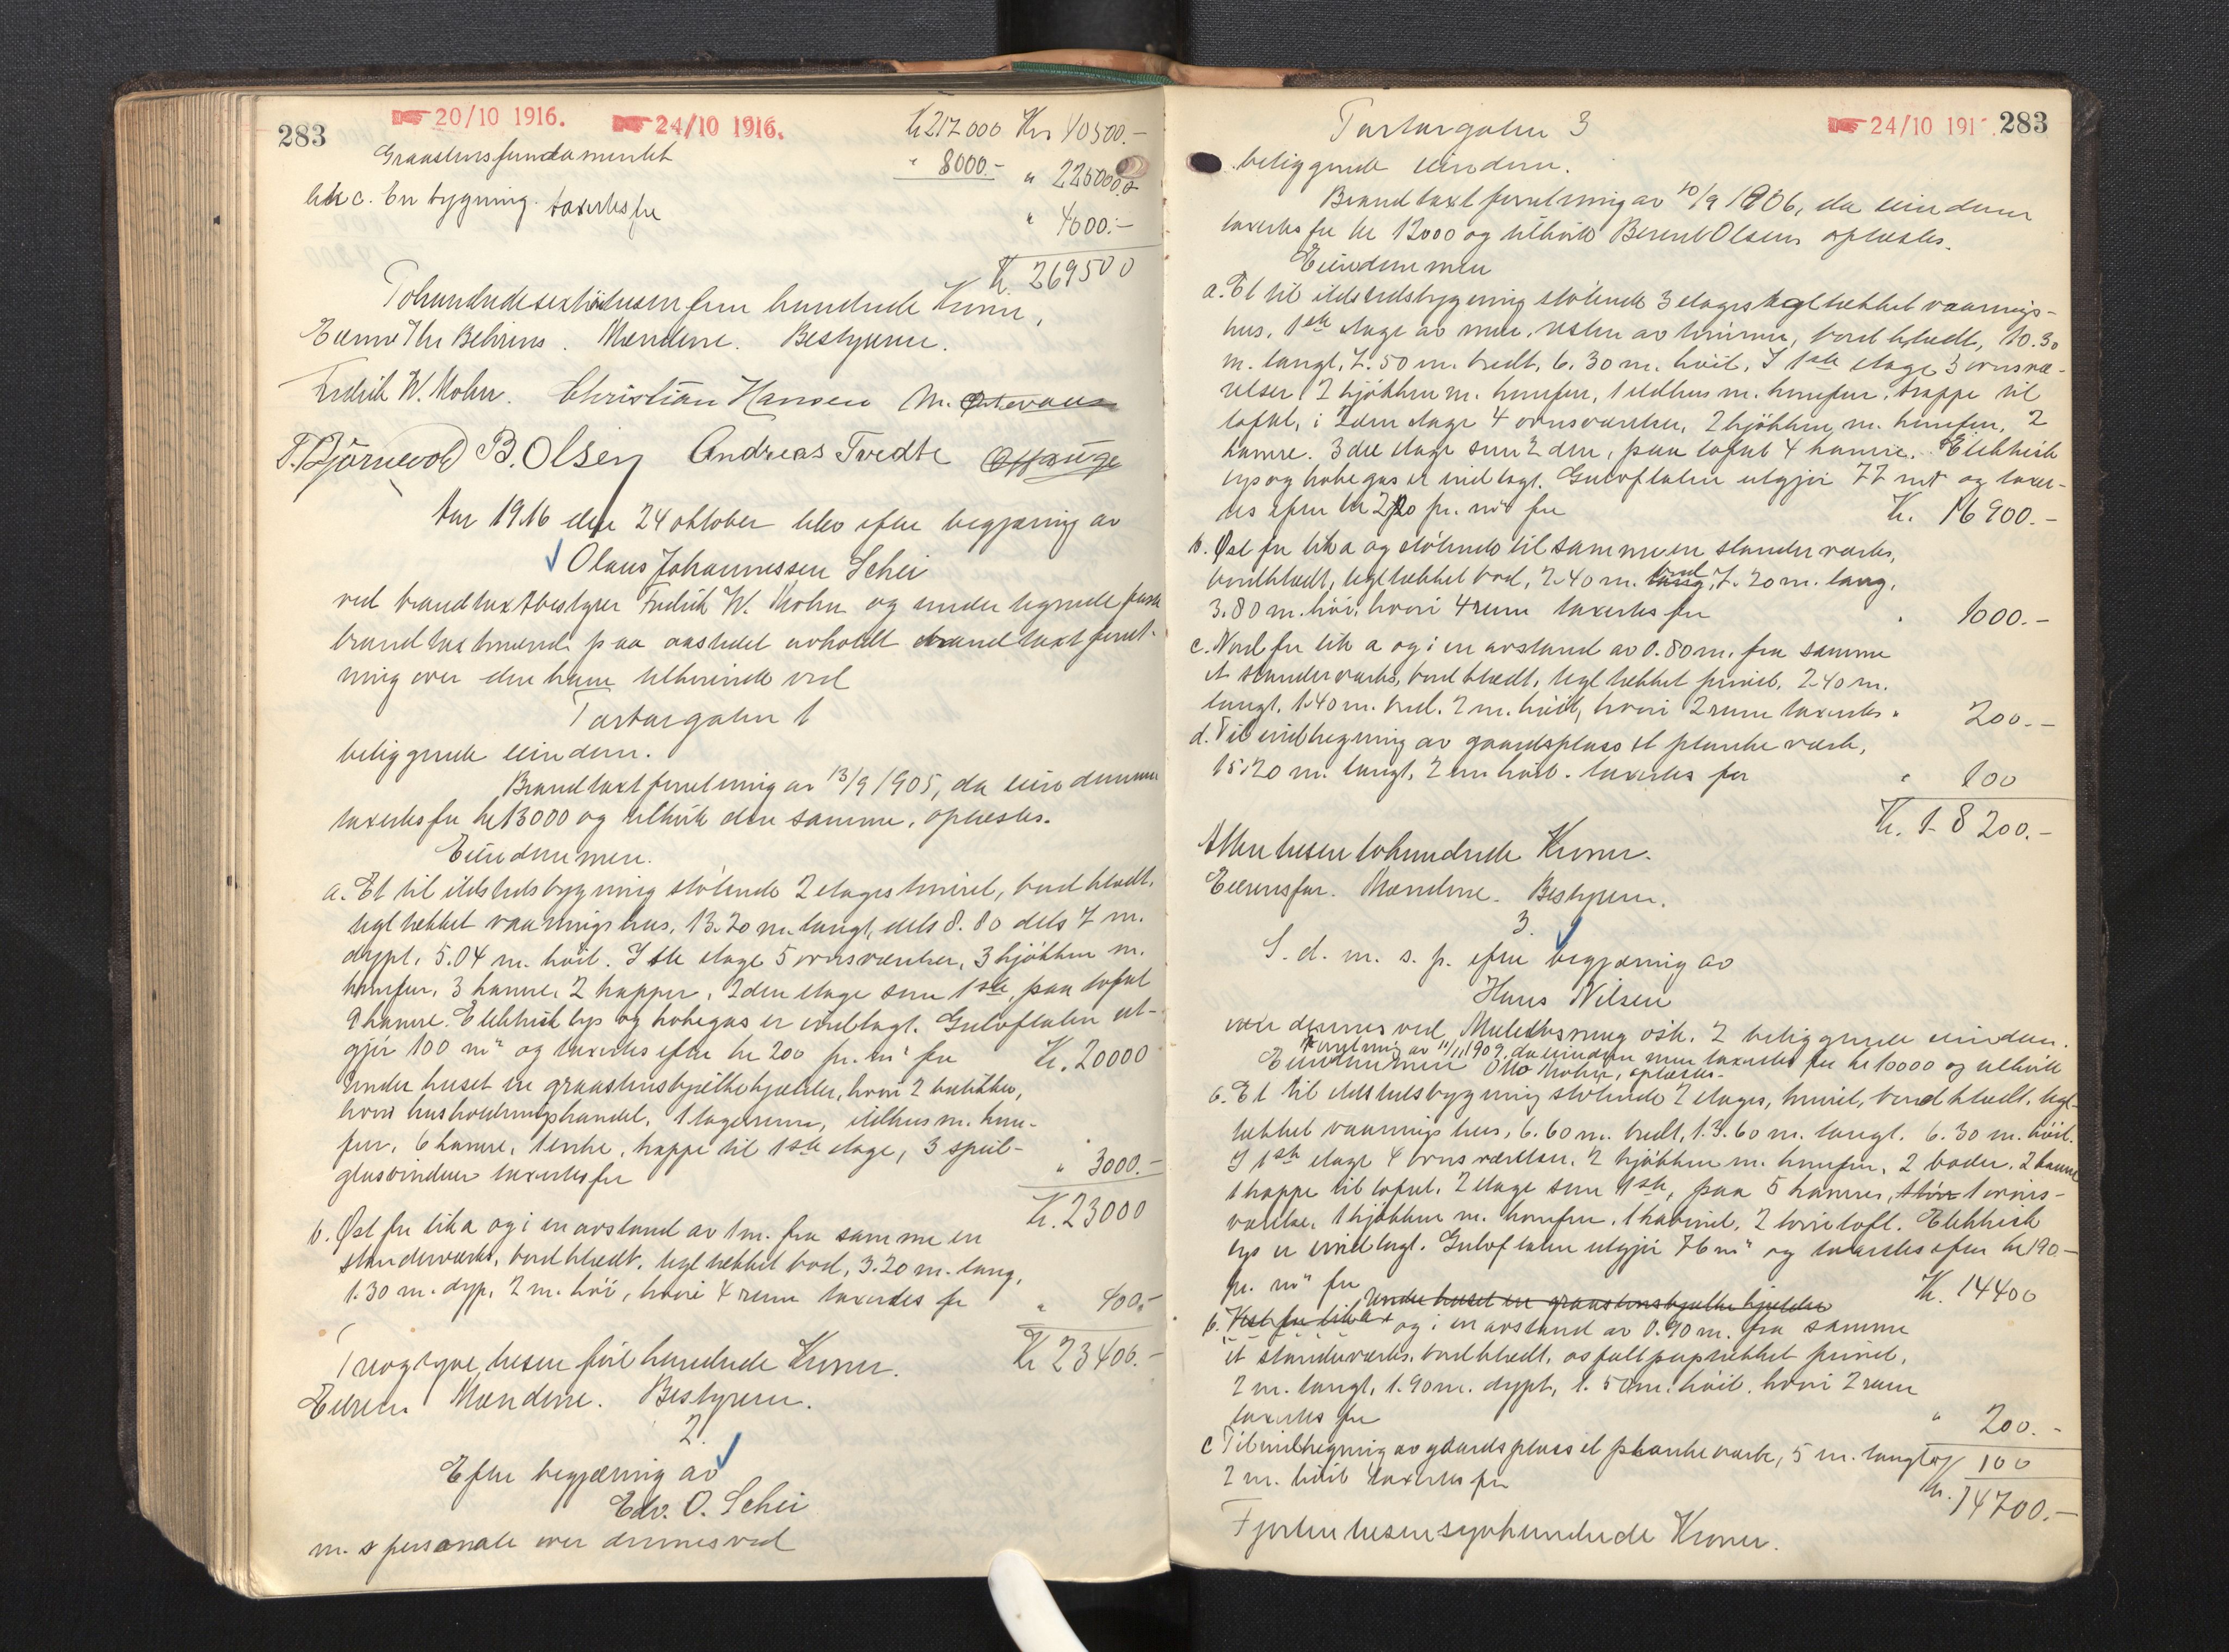 283
20/10 1916.
24/10 1916.
Kr 217000 Kr 40500.-
Graastensfundamentet
" 8000.- " 225000.-
litr c. En bygning taxertes for
" 4000.-
Kr. 269500
Tohundrede fem hundrede Kroner.
Mændene. Bestyreren.
Fredrik W. Mohn. Christian Hansen M.
B. Olsen Andreas Tvedte
Aar 1916 den 24 oktober blev efter begjæring av
Olaus Johannessen Schei
ved brandtaxtbestyrer Fredrik W. Mohn og undertegnede faste
brandtaxtmænd paa aastedet avholdt brandtaxtforret-
ning over den ham tilhørende ved
Tartargaten 1
beliggende eiendom.
Brandtaxtforretning av 13/9 1905, da eiendommen
taxertes for kr 13000 og tilhørte den samme, oplæstes.
Eiendommen.
a. Et til ildstedsbygning støtende 2 etages tømret, bordklædt,
tegltækket vaaningshus, 13.20 m. langt, dels 8.80 dels 7 m.
dypt, 5.04 m. høit. I 1ste etage 5 ovnsværelser, 3 kjøkken m.
komfur, 3 kamre, 2 trapper, 2den etage som 1ste, paa loftet
9 kamre. Elektrisk lys og kokegas er indlagt. Gulvflaten ut-
gjør 100 m² og taxertes efter kr 200 pr. m² for Kr. 20000
Under huset er graastenshvælvkjælder, hvori 2 butikker,
hvori husholdningshandel, 1 lagerrum, ildhus m. kom-
fyr, 6 kamre, trappe til 1ste etage, 3 speil-
glasvinduer taxertes for " 3000.-
Kr. 23000
b. Øst for litra og i en avstand av 1 m. fra samme en
standerværks, bordklædt, tegltækket bod, 3.20 m. lang,
1.30 m. dyp, 2 m. høi, hvori 4 rum taxertes for " 400.-
Kr 23400.-
Treogtyve tusen fire hundrede Kroner.
Eieren. Mændene. Bestyreren.
2.
Efter begjæring av
Edv. O. Schei
m. s personale over dennes ved
Tartargaten 3
24/10 191 283
beliggende eiendom.
Brandtaxtforretning av 10/9 1906, da eiendommen
taxertes for kr 12000 og tilhørte Berent Olsen, oplæstes.
Eiendommen
a. Et til ildstedsbygning støtende 3 etages tegltækket vaanings-
hus, 1ste etage av mur, resten av tømmer, bordklædt, 10.30
m. langt, 7.50 m. bredt, 6.30 m. høit. I 1ste etage 3 ovnsvæ-
relser, 2 kjøkken m. komfur, 1 ildhus m. komfur, trappe til
loftet, i 2den etage 4 ovnsværelser, 2 kjøkken m. komfur, 2
kamre. 3die etage som 2den, paa loftet 4 kamre. Elektrisk
lys og kokegas er indlagt. Gulvflaten utgjør 77 m² og taxer-
tes efter kr 220 pr. m² for Kr. 16900.-
b. Øst for litr a og støtende til samme en standerværks,
bordklædt, tegltækket bod, 2.40 m. bred, 7.20 m. lang,
3.80 m. høi, hvori 4 rum taxertes for " 1000.-
c. Nord for litr a og i en avstand av 0.80 m. fra samme
et standerværks, bordklædt, tegltækket privet, 2.40 m.
langt, 1.40 m. bred, 2 m. høit, hvori 2 rum taxertes " 200.-
d. Til indhegning av gaardsplass et plankeværk,
15.20 m. langt, 2 m. høit. taxertes for " 100
Kr. 18200.-
Atten tusen tohundrede Kroner.
Mændene. Bestyreren.
3.
S. d. m. s. p. efter begjæring av
Hans Nilsen
over dennes ved Muledosmug østr. 2 beliggende eiendom.
Forretning av 11/11 1909, da eiendommen taxertes for kr 10000 og tilhørte
Eiendommen Otto Mohn, oplæstes.
a. Et til ildstedsbygning støtende 2 etages, tømret, bordklædt, tegl-
tækket vaaningshus, 6.60 m. bredt, 13.60 m. langt, 6.30 m. høit.
I 1ste etage 4 ovnsværelser, 2 kjøkken m. komfur, 2 boder, 2 kamre
1 trappe til loftet. 2 etage som 1ste, paa 5 kamre, 1 ovns-
værelse, 1 kjøkken m. komfur, 1 kabinet, 2 tørreloft. Elektrisk
lys er indlagt. Gulvflaten utgjør 76 m² og taxertes efter kr 190.-
pr. m² for Kr. 14400
Under huset er graastenshvælv kjælder
b. Vest for litr a og i en avstand av 0.90 m. fra samme
et standerværks, bordklædt, asfaltpaptækket privet,
2 m. langt, 1.90 m. dypt, 1.50 m. høit, hvori 2 rum
taxertes for " 200.-
c Til indhegning av gaardsplass et plankeværk, 5 m. langt og 100
2 m. høit taxertes for
Kr. 14700.-
Fjorten tusen syvhundrede Kroner.